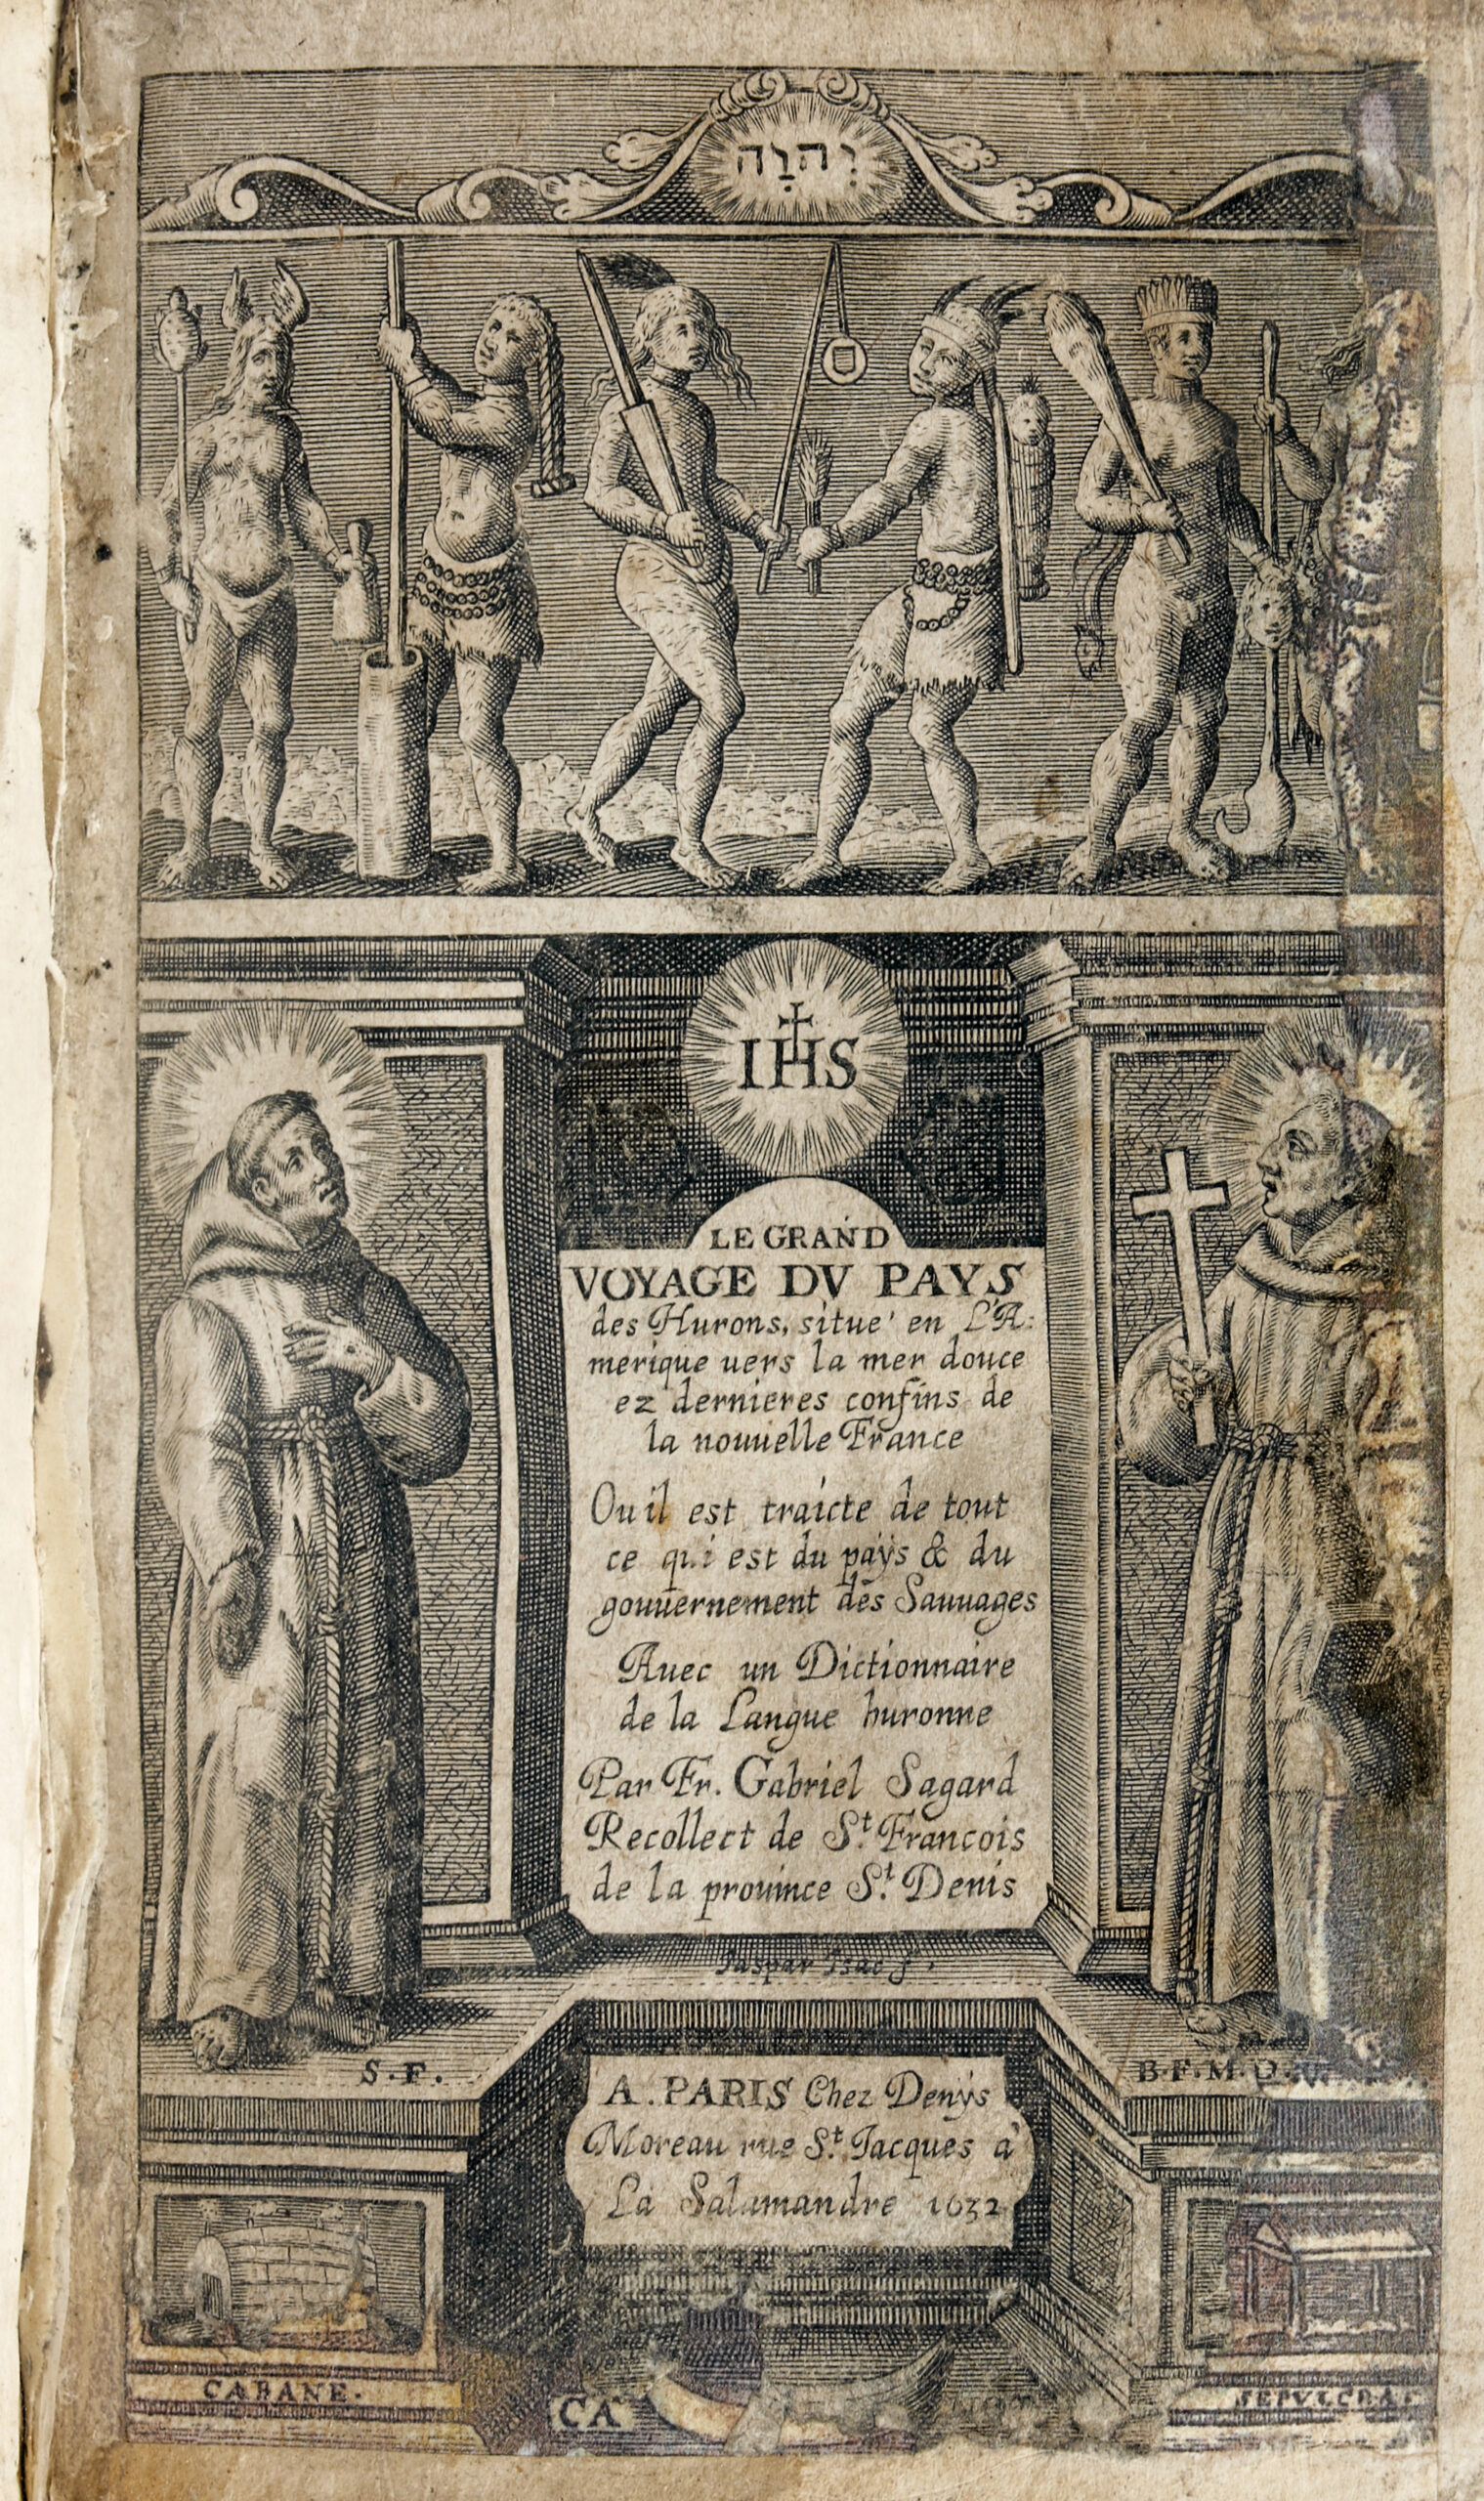 יְהוָה
IHS
LE GRAND
VOYAGE DV PAYS
des Hurons, situe' en L'A:
merique uers la mer douce
ez dernieres confins de
la nouuelle France
Ou il est traicte de tout
ce qui est du païs & du
gouuernement des Sauuages
Auec un Dictionnaire
de la Langue huronne
Par Fr. Gabriel Sagard
Recollect de St. Francois
de la prouince St. Denis
Jaspar Isac f.
S. F.
B. F. M. O.
A. PARIS Chez Denÿs
Moreau rue St. Jacques a
La Salamandre 1632
CABANE.
CA
SEPVLCRA.